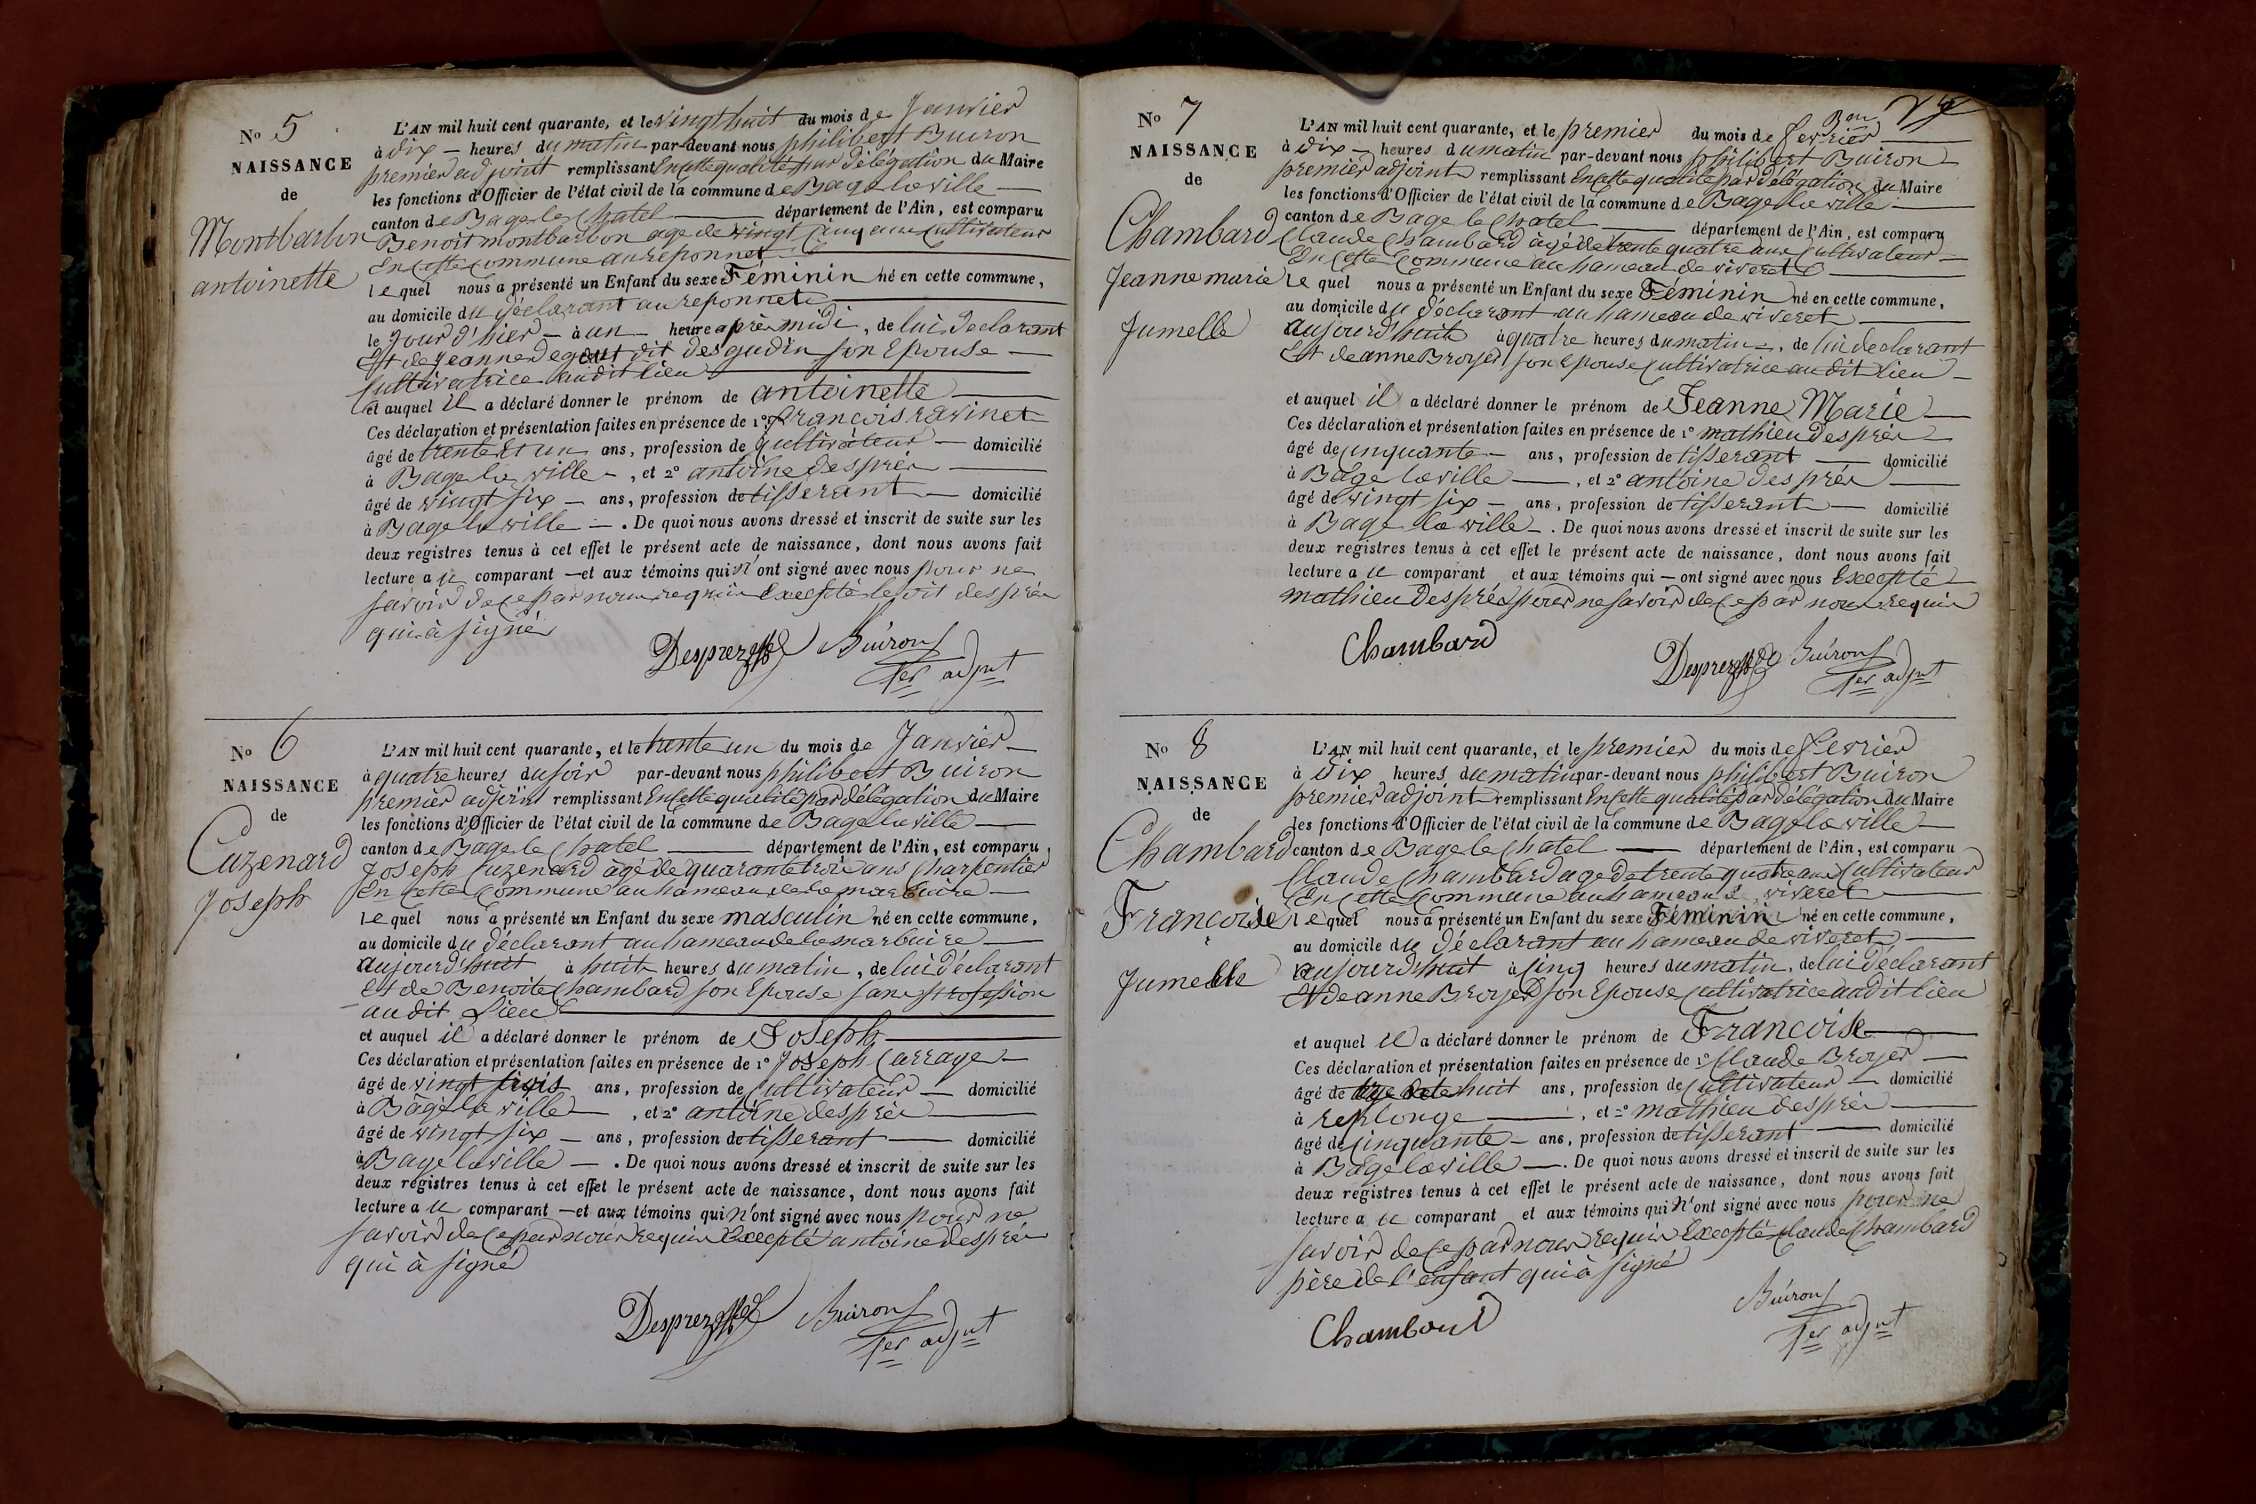 No 5
NAISSANCE
de
Montbarbon
antoinette
L'AN mil huit cent quarante, et le vingt huit du mois de Janvier
à dix — heures du matin par-devant nous philibert Buiron
premier adjoint remplissant En cette qualité par délégation du Maire
les fonctions d'Officier de l'état civil de la commune de Bagé la ville —
canton de Bagé le Chatel — département de l'Ain, est comparu
Benoit montbarbon age de vingt Cinq ans Cultivateur
En Cette Commune au reponnet
lequel nous a présenté un Enfant du sexe Féminin né en cette commune,
au domicile du déclarant au reponnet
le Jour d'hier — à un — heure après midi, de lui déclarant
Et de Jeanne degout dit desgudin son Epouse —
Cultivatrice audit lieu
et auquel il a déclaré donner le prénom de antoinette
Ces déclaration et présentation faites en présence de 1° françois ravinet
âgé de trente et un ans, profession de Cultivateur — domicilié
à Bagé la ville —, et 2° antoine després
âgé de vingt six — ans, profession de tisserant — domicilié
à Bagé la ville —. De quoi nous avons dressé et inscrit de suite sur les
deux registres tenus à cet effet le présent acte de naissance, dont nous avons fait
lecture au comparant — et aux témoins qui n'ont signé avec nous pour ne
savoir de Ce par nous requis Excepté le dit després
qui à signé
Desprez Buiron
1er adjnt
No 6
NAISSANCE
de
Cuzenard
Joseph
L'AN mil huit cent quarante, et le trente un du mois de Janvier —
à quatre heures du soir par-devant nous philibert Buiron
premier adjoint remplissant En Cette qualité par délégation du Maire
les fonctions d'Officier de l'état civil de la commune de Bagé la ville —
canton de Bagé le Chatel — département de l'Ain, est comparu
Joseph Cuzenard âgé de quarante trois ans Charpentier
En Cette Commune au hameau de la marbuire —
lequel nous a présenté un Enfant du sexe masculin né en cette commune,
au domicile du déclarant au hameau de la marbuire —
aujourd'huit à huit heures du matin, de lui déclarant
Et de Benoite Chambard son Epouse sans profession
au dit Lieu
et auquel il a déclaré donner le prénom de Joseph —
Ces déclaration et présentation faites en présence de 1° Joseph Carrage —
âgé de vingt ans, profession de Cultivateur — domicilié
à Bagé la ville —, et 2° antoine després
âgé de vingt six — ans, profession de tisserant — domicilié
à Bagé la ville —. De quoi nous avons dressé et inscrit de suite sur les
deux registres tenus à cet effet le présent acte de naissance, dont nous avons fait
lecture au comparant — et aux témoins qui n'ont signé avec nous pour ne
savoir de Ce par nous requis Excepté antoine després
qui à signé
Desprez Buiron
1er adjnt
No 7
NAISSANCE
de
Chambard
Jeanne marie
Jumelle
L'AN mil huit cent quarante, et le premier du mois de fevrier
à dix — heures du matin par-devant nous philibert Buiron
premier adjoint remplissant En Cette qualité par délégation du Maire
les fonctions d'Officier de l'état civil de la commune de Bagé la ville —
canton de Bagé le Chatel — département de l'Ain, est comparu
Claude Chambard âgé de trente quatre ans Cultivateur —
En Cette Commune au hameau de viveret
lequel nous a présenté un Enfant du sexe Féminin né en cette commune,
au domicile du déclarant au hameau de viveret
aujourd'huit à quatre heures du matin —, de lui déclarant
Et de anne Broyer son Epouse Cultivatrice au dit lieu —
et auquel il a déclaré donner le prénom de Jeanne Marie —
Ces déclaration et présentation faites en présence de 1° mathieu després
âgé de Cinquante — ans, profession de tisserant — domicilié
à Bagé la ville —, et 2° antoine després
âgé de vingt six — ans, profession de tisserant — domicilié
à Bagé la ville —. De quoi nous avons dressé et inscrit de suite sur les
deux registres tenus à cet effet le présent acte de naissance, dont nous avons fait
lecture au comparant et aux témoins qui — ont signé avec nous Excepté
mathieu després pour ne savoir de Ce par nous requis
Chambard
Desprez Buiron
1er adjnt
No 8
NAISSANCE
de
Chambard
Francoise
Jumelle
L'AN mil huit cent quarante, et le premier du mois de fevrier
à dix heures du matin par-devant nous philibert Buiron
premier adjoint remplissant En Cette qualité par délégation du Maire
les fonctions d'Officier de l'état civil de la commune de Bagé la ville —
canton de Bagé le Chatel — département de l'Ain, est comparu
Claude Chambard age de trente quatre ans Cultivateur
En Cette Commune au hameau de viveret
lequel nous a présenté un Enfant du sexe Féminin né en cette commune,
au domicile du déclarant au hameau de viveret —
aujourd'huit à Cinq heures du matin, de lui déclarant
Et de anne Broyer son Epouse Cultivatrice au dit lieu
et auquel il a déclaré donner le prénom de Francoise
Ces déclaration et présentation faites en présence de 1° Claude Broyer —
âgé de huit ans, profession de Cultivateur — domicilié
à replonge —, et 2° mathieu després
âgé de Cinquante — ans, profession de tisserant — domicilié
à Bagé la ville —. De quoi nous avons dressé et inscrit de suite sur les
deux registres tenus à cet effet le présent acte de naissance, dont nous avons fait
lecture au comparant et aux témoins qui n'ont signé avec nous pour ne
savoir de Ce par nous requis Excepté Claude Chambard
père de l'enfant qui à signé
Chambard
Buiron
1er adjnt